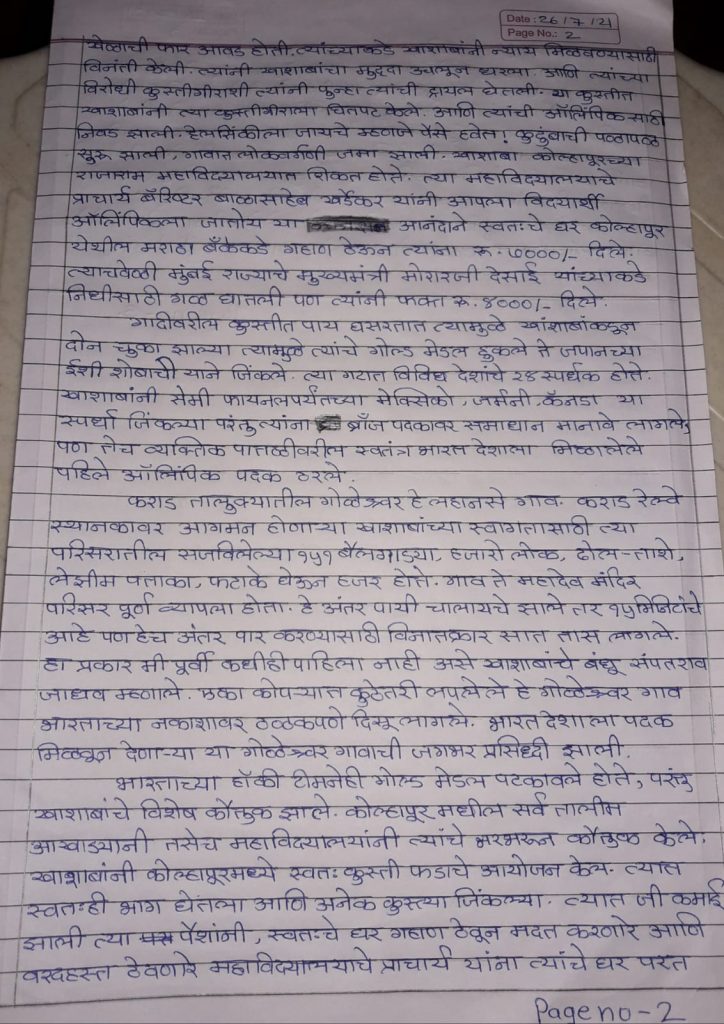 Date: 26/7/21
Page No.: 2
खेळाची फार आवड होती. त्यांच्याकडे खाशाबांनी न्याय मिळवण्यासाठी
विनंती केली. त्यांनी खाशाबांचा मुद्दा उचलून धरला. आणि त्यांच्या
विरोधी कुस्तीगीराशी त्यांनी पुन्हा त्यांची ट्रायल घेतली. या कुस्तीत
खाशाबांनी त्या कुस्तीगीराला चितपट केले. आणि त्यांची ऑलिंपिकसाठी
निवड झाली. हेलसिंकीला जायचे म्हणजे पैसे हवेत! कुटुंबाची पळापळ
सुरू झाली, गावात लोकवर्गणी जमा झाली. खाशाबा कोल्हापूरच्या
राजाराम महाविद्यालयात शिकत होते. त्या महाविद्यालयाचे
प्राचार्य बॅरिस्टर बाळासाहेब खर्डेकर यांनी आपला विद्यार्थी
ऑलिंपिकला जातोय या आनंदाने स्वतःचे घर कोल्हापूर
येथील मराठा बँकेकडे गहाण ठेऊन त्यांना रू. ७०००/- दिले.
त्याचवेळी मुंबई राज्याचे मुख्यमंत्री मोरारजी देसाई यांच्याकडे
निधीसाठी गळ घातली पण त्यांनी फक्त रू. ४०००/- दिले.
गादीवरील कुस्तीत पाय घसरतात त्यामुळे खांशाबांकडून
दोन चुका झाल्या त्यामुळे त्यांचे गोल्ड मेडल हुकले ते जपानच्या
ईशी शोबाची याने जिंकले. त्या गटात विविध देशांचे २४ स्पर्धक होते.
खाशाबांनी सेमी फायनलपर्यंतच्या मेक्सिको, जर्मनी, कॅनडा या
स्पर्धा जिंकल्या परंतु त्यांना ब्राँज पदकावर समाधान मानावे लागले,
पण तेच व्यक्तिक पातळीवरील स्वतंत्र भारत देशाला मिळालेले
पहिले ऑलिंपिक पदक ठरले.
कराड तालुक्यातील गोळेश्वर हे लहानसे गाव. कराड रेल्वे
स्थानकावर आगमन होणाऱ्या खाशाबांच्या स्वागतासाठी त्या
परिसरातील सजविलेल्या १५१ बैलगाड्या, हजारो लोक, ढोल-ताशे,
लेझीम पताका, फटाके घेऊन हजर होते. गाव ते महादेव मंदिर
परिसर पूर्ण व्यापला होता. हे अंतर पायी चालायचे झाले तर १५ मिनिटांचे
आहे पण हेच अंतर पार करण्यासाठी मिरवणूकीला सात तास लागले.
हा प्रकार मी पूर्वी कधीही पाहिला नाही असे खाशाबांचे बंधू संपतराव
जाधव म्हणाले. एका कोपऱ्यात कुठेतरी लपलेले हे गोळेश्वर गाव
भारताच्या नकाशावर ठळकपणे दिसू लागले. भारत देशाला पदक
मिळवून देणाऱ्या या गोळेश्वर गावाची जगभर प्रसिध्दी झाली.
भारताच्या हॉकी टीमनेही गोल्ड मेडल पटकावले होते, परंतु
खाशाबांचे विशेष कौतुक झाले. कोल्हापूर मधील सर्व तालीम
आखाड्यानी तसेच महाविद्यालयांनी त्यांचे भरभरून कौतुक केले.
खाशाबांनी कोल्हापूरमध्ये स्वतः कुस्ती फडाचे आयोजन केल. त्यात
स्वतःही भाग घेतला आणि अनेक कुस्त्या जिंकल्या. त्यात जी कमाई
झाली त्या पैशांनी, स्वतःचे घर गहाण ठेवून मदत करणारे आणि
वरदहस्त ठेवणारे महाविद्यालयाचे प्राचार्य यांना त्यांचे घर परत
Page no-2